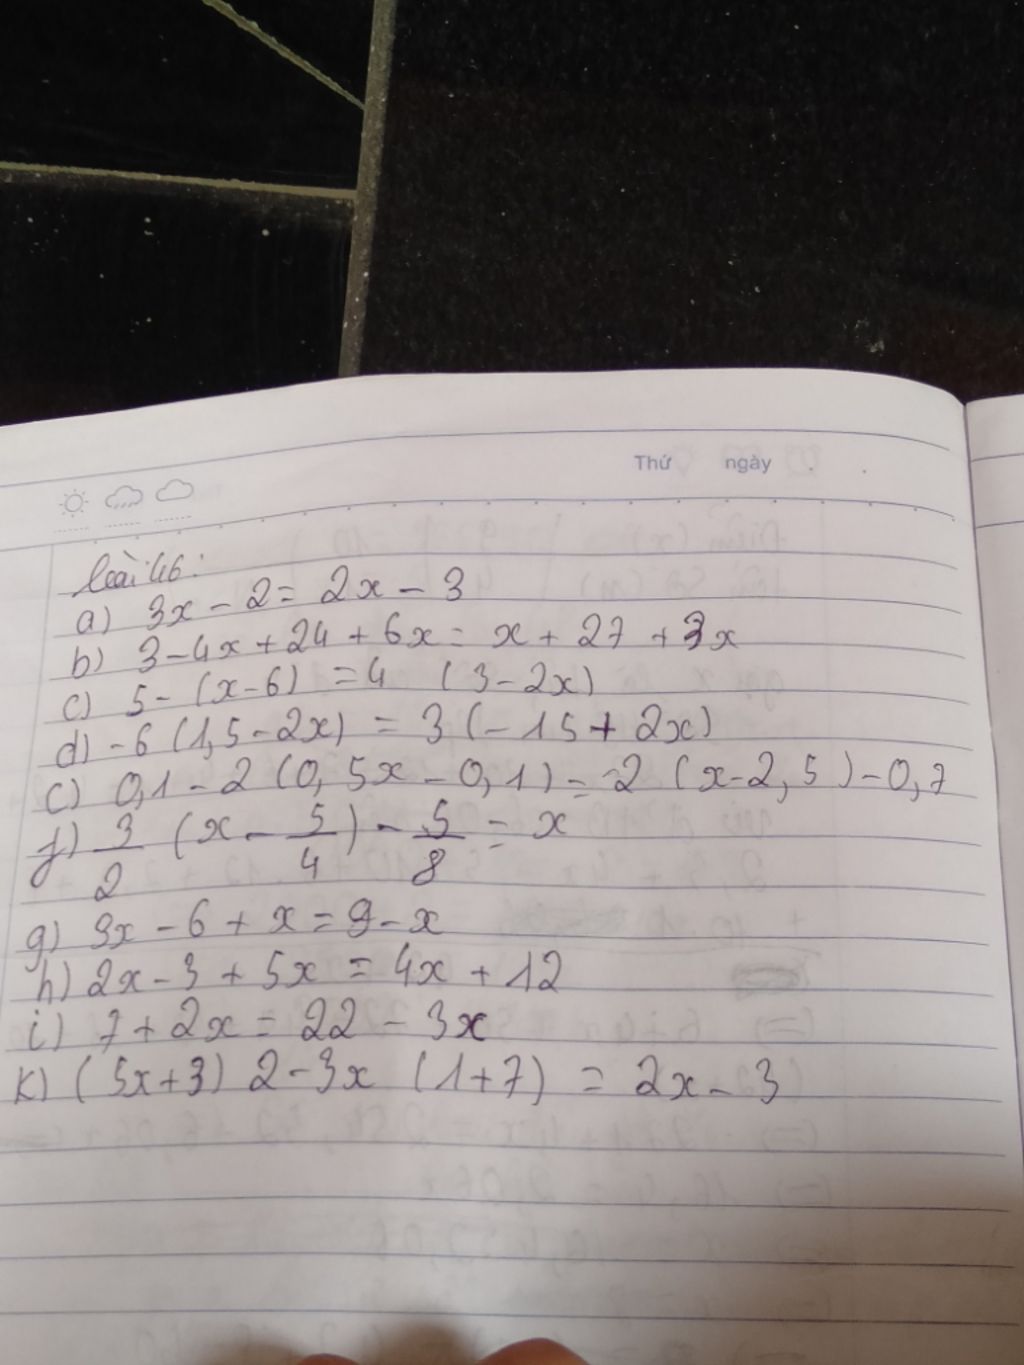 Thứ ngày
bài 46:
a) 3x - 2 = 2x - 3
b) 3 - 4x + 24 + 6x = x + 27 + 3x
c) 5 - (x - 6) = 4 (3 - 2x)
d) -6 (1,5 - 2x) = 3 (-15 + 2x)
c) 0,1 - 2 (0,5x - 0,1) = -2 (x - 2,5) - 0,7
f) 3/2 (x - 5/4) - 5/8 = x
g) 3x - 6 + x = 9 - x
h) 2x - 3 + 5x = 4x + 12
i) 7 + 2x = 22 - 3x
k) (5x + 3) 2 - 3x (1 + 7) = 2x - 3